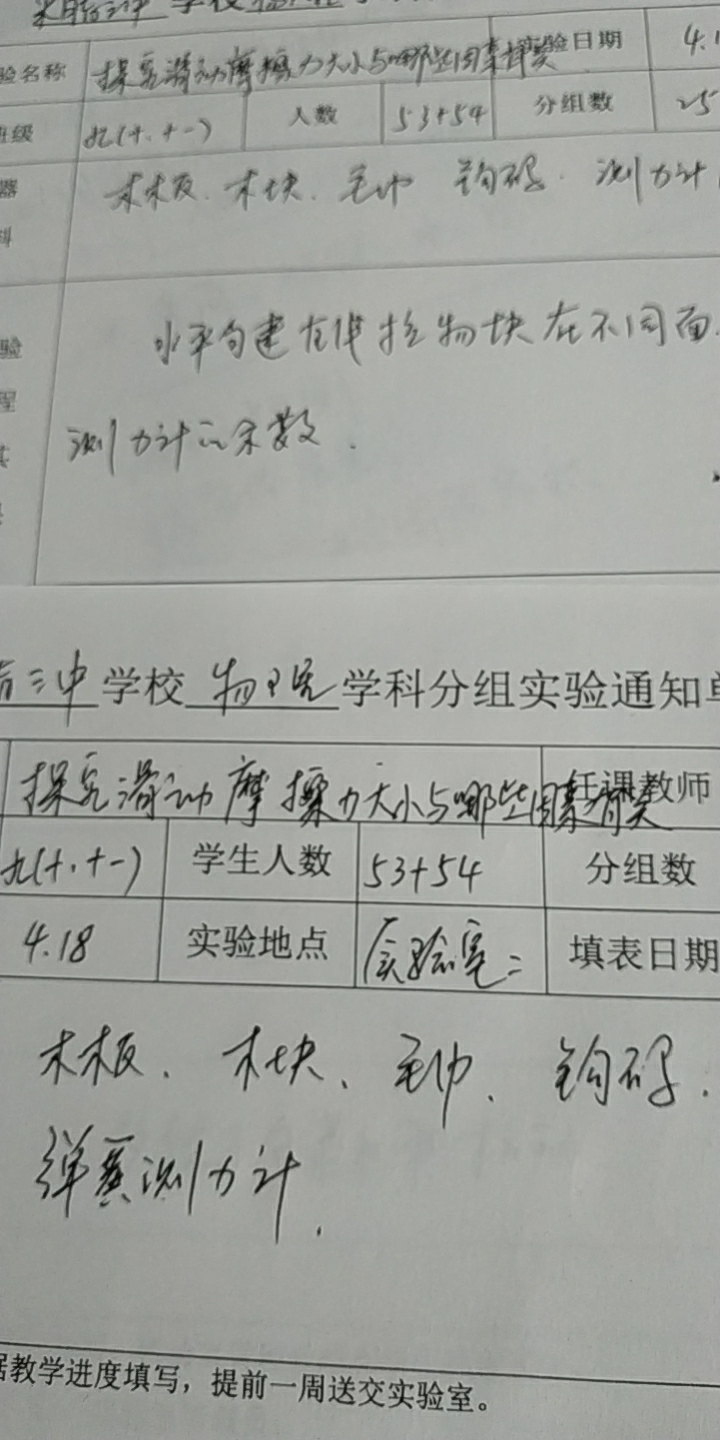 三中 学校
验名称 探究滑动摩擦力大小与哪些因素有关 实验日期 4.1
班级 九(十、十一) 人数 53+54 分组数 25
器 木板、木块、毛巾 钩码、测力计
料
水平匀速 拉物块在不同面
验
程 测力计示数.
三中 学校 物理 学科分组实验通知单
探究滑动摩擦力大小与哪些因素有关 任课教师
九(十、十一) 学生人数 53+54 分组数
4.18 实验地点 实验室二 填表日期
木板、木块、毛巾、钩码.
弹簧测力计.
据教学进度填写,提前一周送交实验室。